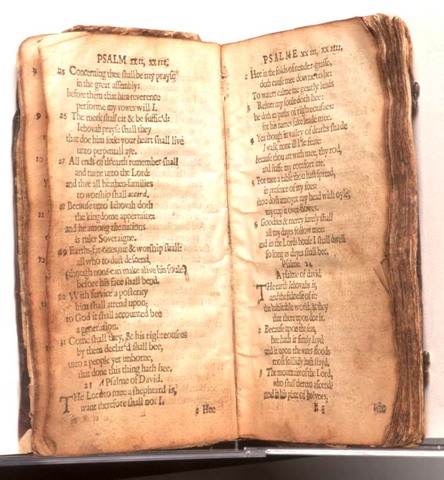 PSALM xxii, xxiii.
25 Concerning thee shall be my prayse
in the great assembly:
before them that him reverence
performe my vowes will I.
26 The meek shall eat & be suffic'd:
Iehovah prayse shall they
that doe him seek: your heart shall live
unto perpetuall aye.
27 All ends of th'earth remember shall
and turne unto the Lord:
and thee all heathen-families
to worship shall accord.
28 Because unto Iehovah doth
the kingdome appertaine:
and he among the nations
is ruler Soveraigne.
29 Earths-fat-ones, eat & worship shall:
all who to dust descend,
(though none can make alive his soule)
before his face shall bend.
30 With service a posterity
him shall attend upon;
to God it shall accounted bee
a generation.
31 Come shall they, & his righteousnes
by them declar'd shall bee,
unto a people yet unborne,
that done this thing hath hee.
23 A Psalme of David.
The Lord to mee a shepheard is,
want therefore shall not I.
2 Hee
PSALME xxiii, xxiiii.
2 Hee in the folds of tender-grasse,
doth cause mee downe to lie:
To waters calme me gently leads
3 Restore my soule doth hee:
he doth in paths of righteousnes:
for his names sake leade mee.
4 Yea though in valley of deaths shade
I walk, none ill I'le feare:
because thou art with mee, thy rod,
and staffe my comfort are.
5 For mee a table thou hast spread,
in presence of my foes:
thou dost annoynt my head with oyle,
my cup it over-flowes.
6 Goodnes & mercy surely shall
all my dayes follow mee:
and in the Lords house I shall dwell
so long as dayes shall bee.
Psalme 24
A psalme of david.
The earth Iehovahs is,
and the fulnesse of it:
the habitable world, & they
that there upon doe sit.
2 Because upon the seas,
hee hath it firmly layd:
and it upon the water-floods
most sollidly hath stayd.
3 The mountaine of the Lord,
who shall thereto ascend?
and in his place of holynes,